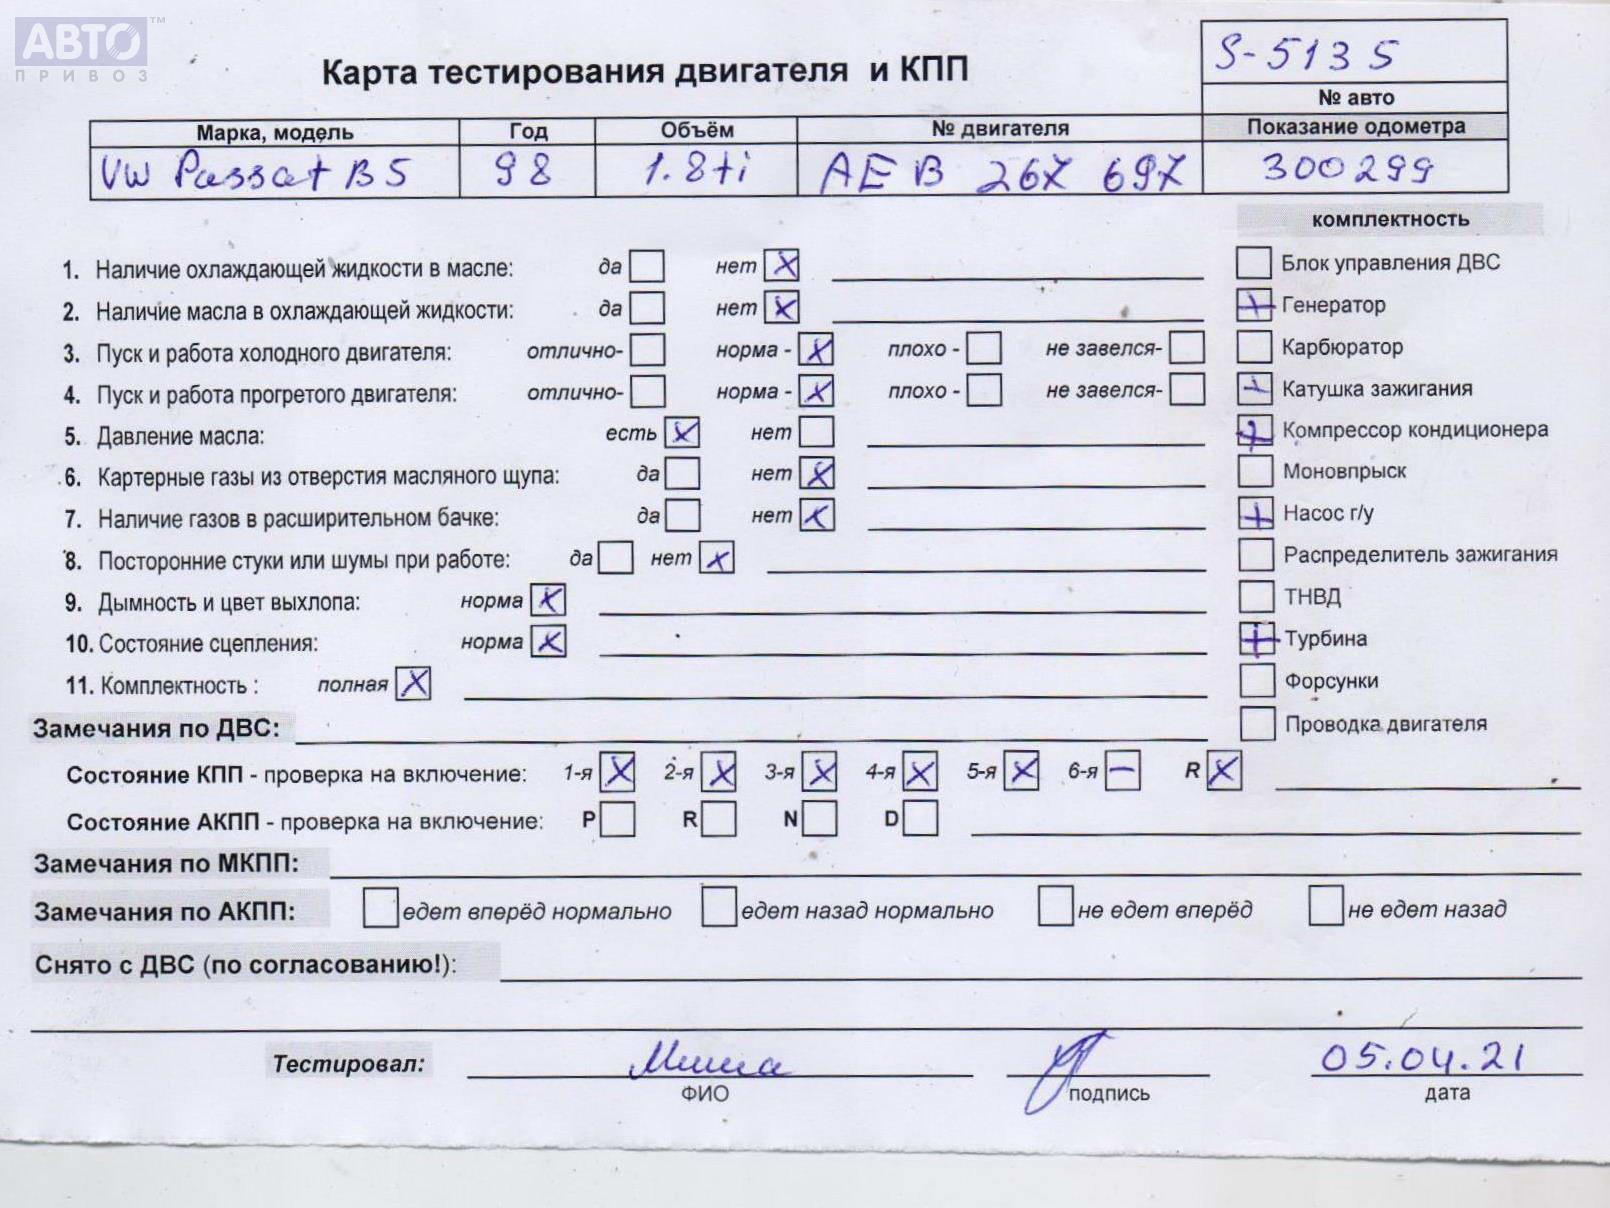 АВТО™
ПРИВОЗ
Карта тестирования двигателя и КПП
S-5135
№ авто
Марка, модель Год Объём № двигателя Показание одометра
VW Passat B5 98 1.8ti AEB 267 697 300299
комплектность
1. Наличие охлаждающей жидкости в масле: да нет X
Блок управления ДВС
2. Наличие масла в охлаждающей жидкости: да нет X
+ Генератор
3. Пуск и работа холодного двигателя: отлично- норма - X плохо - не завелся-
Карбюратор
4. Пуск и работа прогретого двигателя: отлично- норма - X плохо - не завелся-
+ Катушка зажигания
5. Давление масла: есть X нет
+ Компрессор кондиционера
6. Картерные газы из отверстия масляного щупа: да нет X
Моновпрыск
7. Наличие газов в расширительном бачке: да нет X
+ Насос г/у
8. Посторонние стуки или шумы при работе: да нет X
Распределитель зажигания
9. Дымность и цвет выхлопа: норма X
ТНВД
10. Состояние сцепления: норма X
+ Турбина
11. Комплектность : полная X
Форсунки
Замечания по ДВС:
Проводка двигателя
Состояние КПП - проверка на включение: 1-я X 2-я X 3-я X 4-я X 5-я X 6-я – R X
Состояние АКПП - проверка на включение: P R N D
Замечания по МКПП:
Замечания по АКПП: едет вперёд нормально едет назад нормально не едет вперёд не едет назад
Снято с ДВС (по согласованию!):
Тестировал: Миша 05.04.21
ФИО подпись дата